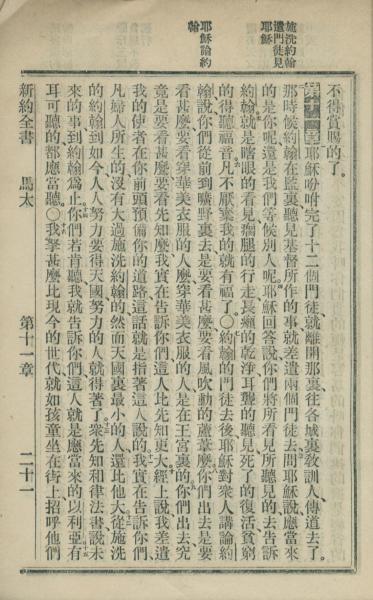 施洗約翰
遣門徒見
耶穌
耶穌論約
翰
不得賞賜的了。
第十一章耶穌吩咐完了十二個門徒就離開那裏往各城裏敎訓人傳道去了。
那時候約翰在監裏聽見基督所作的事就差遣兩個門徒去問耶穌說應當來
的是你呢還是我們等候別人呢耶穌回答說你們將所看見所聽見的去吿訴
約翰就是瞎眼的看見瘸腿的行走長癩的乾淨耳聾的聽見死了的復活貧窮
的得聽福音凡不厭棄我的就有福了〇約翰的門徒去後耶穌對衆人講論約
翰說你們從前到曠野裏去是要看甚麼要看風吹動的蘆葦麼你們出去是要
看甚麼要看穿華美衣服的人麼穿華美衣服的人是在王宮裏的你們出去究
竟是要看甚麼要看先知麼我實在吿訴你們這人比先知更大經上說我差遣
我的使者在你前頭預備你的道路這話就是指著這人說的我實在吿訴你們
凡婦人所生的沒有大過施洗約翰的然而天國裏最小的人還比他大從施洗
的約翰到如今人人努力要得天國努力的人就得著了衆先知和律法書說未
來的事到約翰爲止你們若肯聽我就吿訴你們這人就是應當來的以利亞有
耳可聽的都應當聽〇我拏甚麼比現今的世代就如孩童坐在街上招呼他們
新約全書 馬太 第十一章 二十一